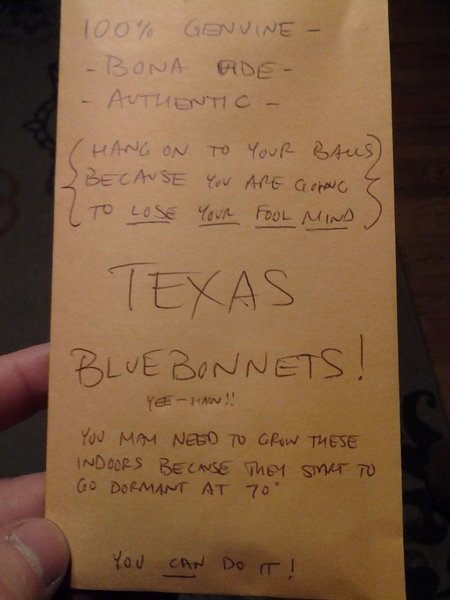 100% GENUINE -
- BONA FIDE -
- AUTHENTIC -
{HANG ON TO YOUR BALLS
BECAUSE YOU ARE GOING
TO LOSE YOUR FOOL MIND}
TEXAS
BLUEBONNETS!
YEE-HAW!!
YOU MAY NEED TO GROW THESE
INDOORS BECAUSE THEY START TO
GO DORMANT AT 70°
YOU CAN DO IT!